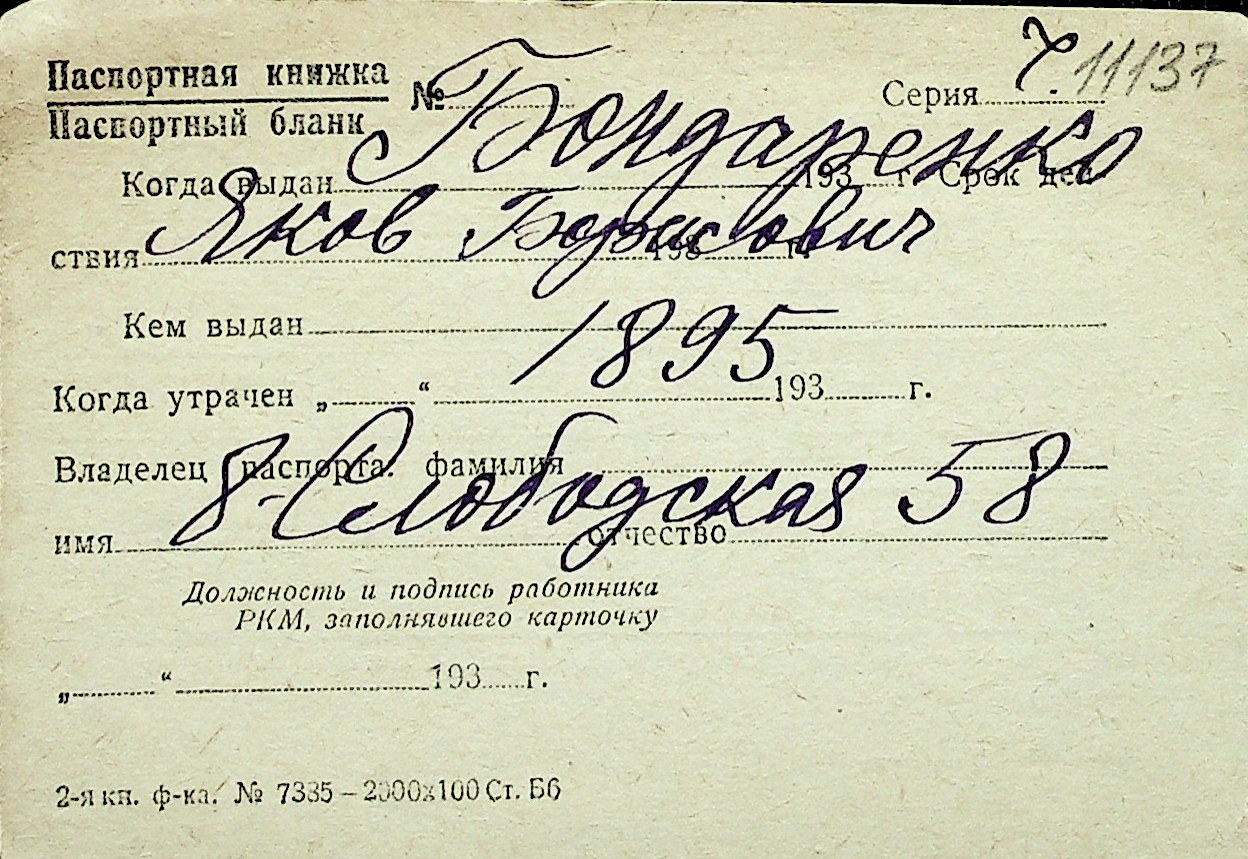 Паспортная книжка
Паспортный бланк № Серия 7. 11137
Бондаренко
Когда выдан 193 г. Срок дей-
Яков Борисович
ствия 193 г.
Кем выдан
1895
Когда утрачен „ “ 193 г.
Владелец паспорта: фамилия
8-Слободская 58
имя отчество
Должность и подпись работника
РКМ, заполнявшего карточку
„ “ 193 г.
2-я кн. ф-ка. № 7335 – 2000х100 Ст. Б6